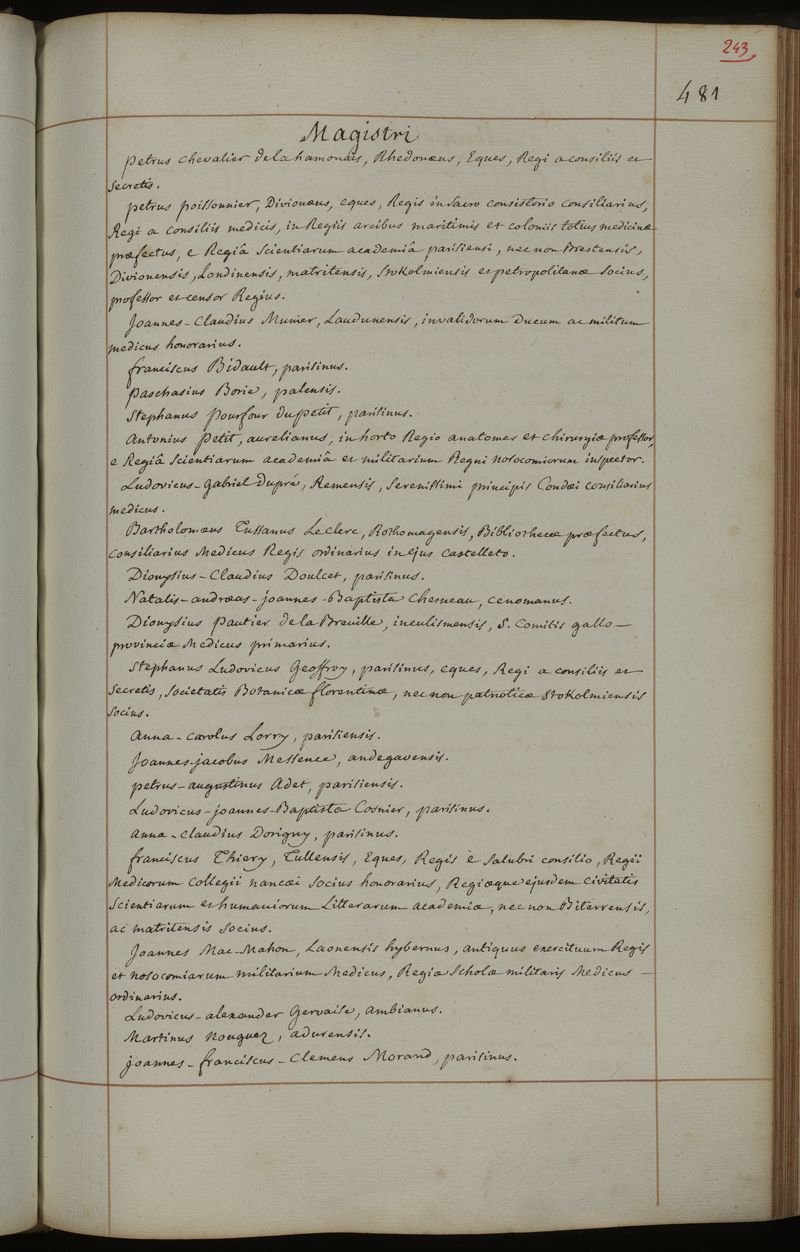 243
481
Magistri
petrus chevalier de la hamonais, Rhedonæus, Eques, Regi a consiliis et
Secretis.
petrus poissonnier, Divionæus, eques, Regis in sacro consistorio consiliarius,
Regi a consiliis medicis, in Regiis arcibus maritimis et coloniis totius medicinæ
præfectus, e Regiâ Scientiarum academiâ parisiensi, nec non Brestensis,
Divionensis, Londinensis, matritensis, Stokolmiensis et petropolitanæ Socius,
professor et censor Regius.
Joannes-Claudius Munier, Laudunensis, invalidorum Ducum ac militum
medicus honorarius.
franciscus Bidault, parisinus.
paschasius Borie, palensis.
Stephanus pourfour dupetit, parisinus.
Antonius petit, aurelianus, in horto Regio anatomes et chirurgiæ professor,
e Regiâ Scientiarum academiâ et militarium Regni nosocomiorum inspector.
Ludovicus-Gabriel Dupré, Remensis, Serenissimi principis Condæi consiliarius
medicus.
Bartholomæus Tussanus Leclerc, Rothomagensis, Bibliothecæ præfectus,
consiliarius Medicus Regis ordinarius in ejus castelleto.
Dionysius-Claudius Doulcet, parisinus.
Natalis-andræas-joannes-Baptista Chesneau, cenomanus.
Dionysius pautier de la Breuille, inculismensis, S. Comitis gallo-
provinciæ Medicus primarius.
Stephanus Ludovicus Geoffroy, parisinus, eques, Regi a consiliis et
Secretis, Societatis Botanicæ florentinæ, nec non patrioticæ Stokolmiensis
Socius.
Anna-carolus Lorry, parisiensis.
Joannes-jacobus Messence, andegavensis.
petrus-augustinus Adet, parisiensis.
Ludovicus-joannes-Baptista Cosnier, parisinus.
Anna-claudius Dorigny, parisinus.
franciscus Thiery, Tullensis, Eques, Regis è salubri consilio, Regii
Medicorum Collegii nancæi Socius honorarius, Regiæque ejusdem civitatis
Scientiarum et humaniorum Litterarum academiæ, nec non Biterrensis,
ac matritensis Socius.
Joannes Mac-Mahon, Laonensis hybernus, antiquus exercituum Regis
et nosocomiarum militarium Medicus, Regiæ Scholæ militaris Medicus
ordinarius.
Ludovicus-alexander Gervaise, Ambianus.
Martinus Nouguez, adurensis.
joannes-franciscus-Clemens Morand, parisinus.